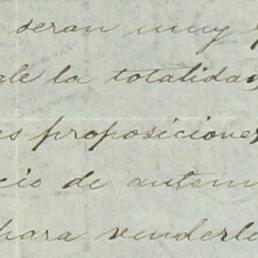 seran muy
ale la totalidad
s proposiciones
cio de antem
para venderlo